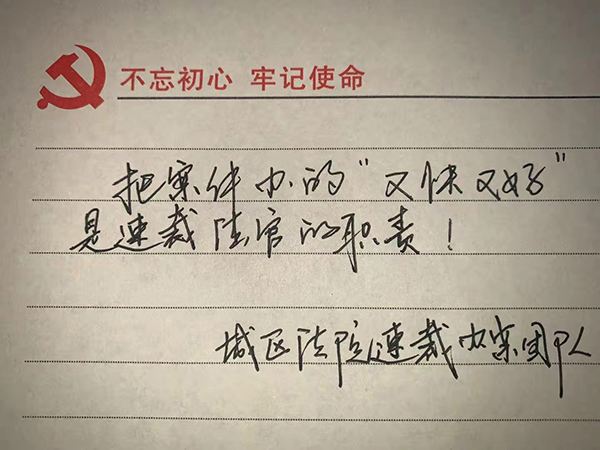 不忘初心 牢记使命
把案件办的“又快又好”
是速裁法官的职责！
城区法院速裁办案团队